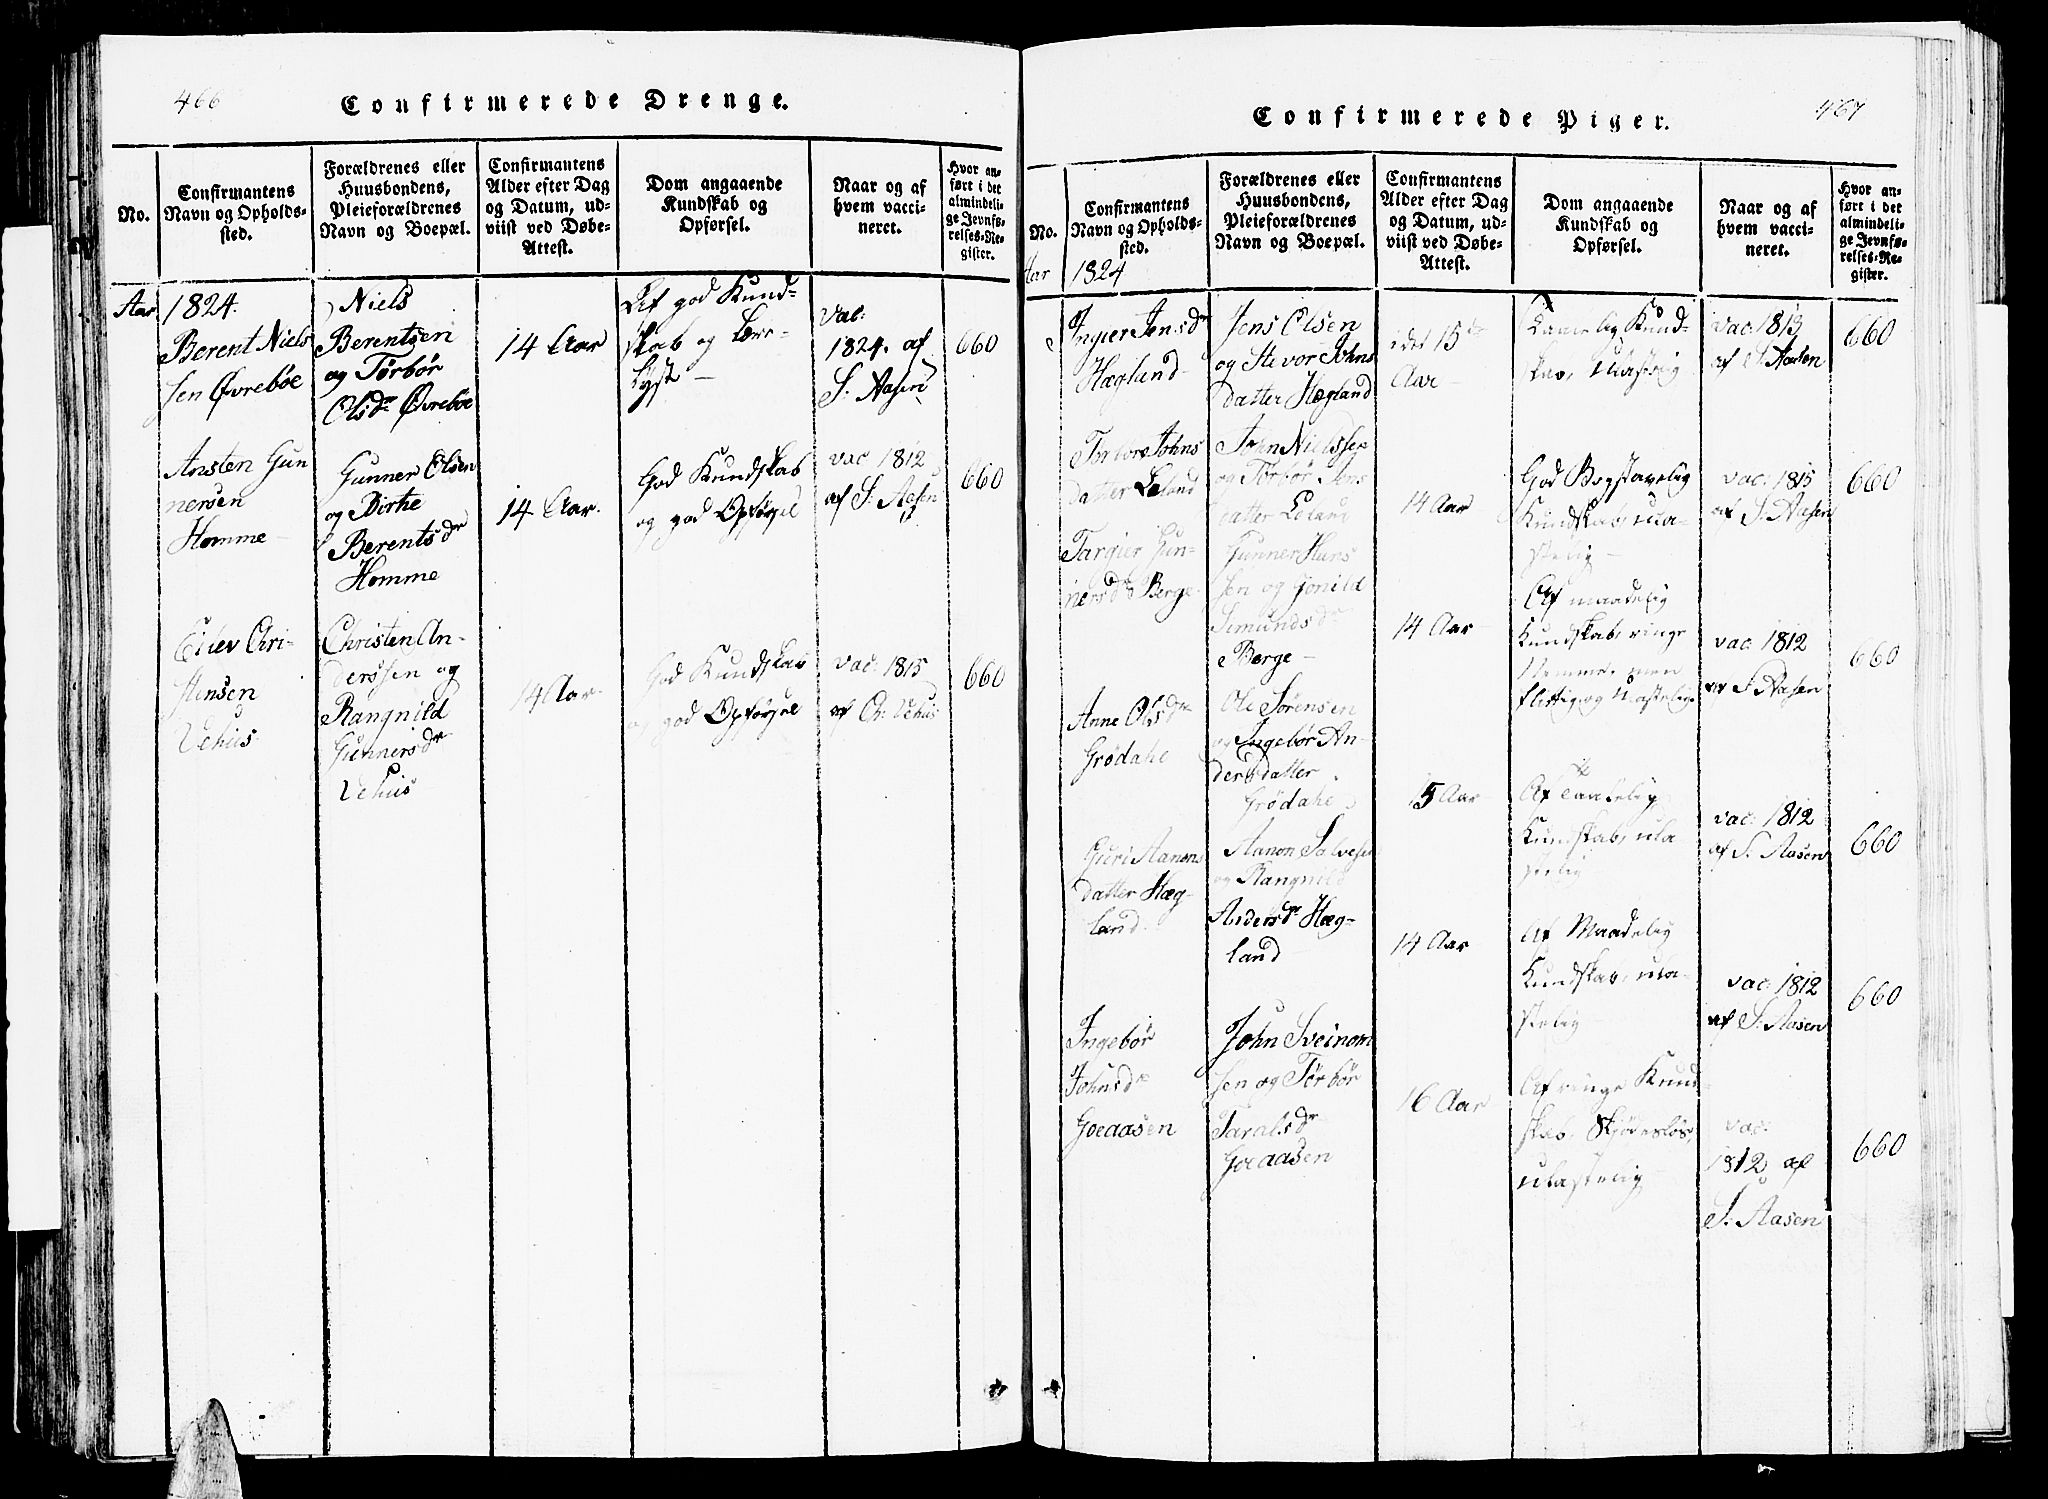 466
Confirmerede Drenge.
No.
Confirmantens
Navn og Opholds-
sted.
Forældrenes eller
Huusbondens,
Pleieforældrenes
Navn og Boepæl.
Confirmantens
Alder efter Dag
og Datum, ud-
viist ved Døbe-
Attest.
Dom angaaende
Kundskab og
Opførsel.
Naar og af
hvem vacci-
neret.
Hvor an-
ført i det
almindeli-
ge Jevnfø-
relses-Re-
gister.
Aar 1824.
Berent Niels
sen Øvrebøe
Niels
Berentsen
og Törbör
Olsdr Øvrebøe
14 Aar
Af god Kund-
skab og Lære-
lyst
Vac:
1824. af
S: Aasen
660
Ansten Gun
nersen
Homme
Gunner Olsen
og Birthe
Berentsdr
Homme
14 Aar.
God Kundskab
og god Opførsel
vac 1812
af S: Aasen
660
Eilev Chri-
stensen
Vehus
Christen An-
derssen og
Rangnild
Gunnersdr
Vehus
14 Aar
God Kundskab
og god Opførsel
vac: 1815
af Ch: Vehus
660
467
Confirmerede Piger.
No.
Confirmantens
Navn og Opholds-
sted.
Forældrenes eller
Huusbondens,
Pleieforældrenes
Navn og Boepæl.
Confirmantens
Alder efter Dag
og Datum, ud-
viist ved Døbe-
Attest.
Dom angaaende
Kundskab og
Opførsel.
Naar og af
hvem vacci-
neret.
Hvor an-
ført i det
almindeli-
ge Jevnfø-
relses-Re-
gister.
Aar 1824
Ingier Jensdr
Hægland
Jens Olsen
og Stevor Johns
datter Hægland
i det 15de
Aar
Kund-
skab, ulastelig
vac: 1813
af S. Aasen
660
Torbore Johns
datter Leland
John Nielssen
og Törbör Jens
datter Leland
14 Aar
God Bogstavelig
Kundskab, ula-
stelig
vac: 1815
af S. Aasen
660
Targier Gun-
nersdr Berge
Gunner Hans
sen og Gonild
Simundsdr
Berge
14 Aar
Af maadelig
Kundskab, ringe
Nemme, men
flittig og ulastelig
vac: 1812
av S Aasen
660
Anne Olsdr
Grödahe
Ole Sörensen
og Ingebör An-
dersdatter
Grödahe
15 Aar
Af taalelig
Kundskab, ula
stelig
vac: 1812
af S. Aasen
660
Guri Aanons
datter Hæg-
land.
Aanon Salvesen
og Rangnild
Andersdr Hæg-
land
14 Aar
Af Maadelig
Kundskab, ula-
stelig
vac: 1812
af S: Aasen
660
Ingebör
Johnsdr
Goeaasen
John Sveinom
sen og Törbör
Taralsdr
Goeaasen
16 Aar
Af ringe Kund-
skab, Skjødesløs,
ulastelig
vac:
1812 af
S. Aasen
660